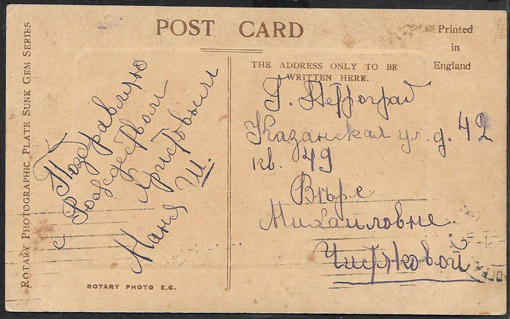 POST CARD
Printed
in
England
THE ADDRESS ONLY TO BE
WRITTEN HERE.
ROTARY PHOTOGRAPHIC PLATE SUNK GEM SERIES
Поздравляю
с Рождеством
Христовым
Маня Ш.
Г. Петроград
Казанская ул. д. 42
кв. 49
Вѣре
Михаиловне
Чистяковой
ROTARY PHOTO E.C.